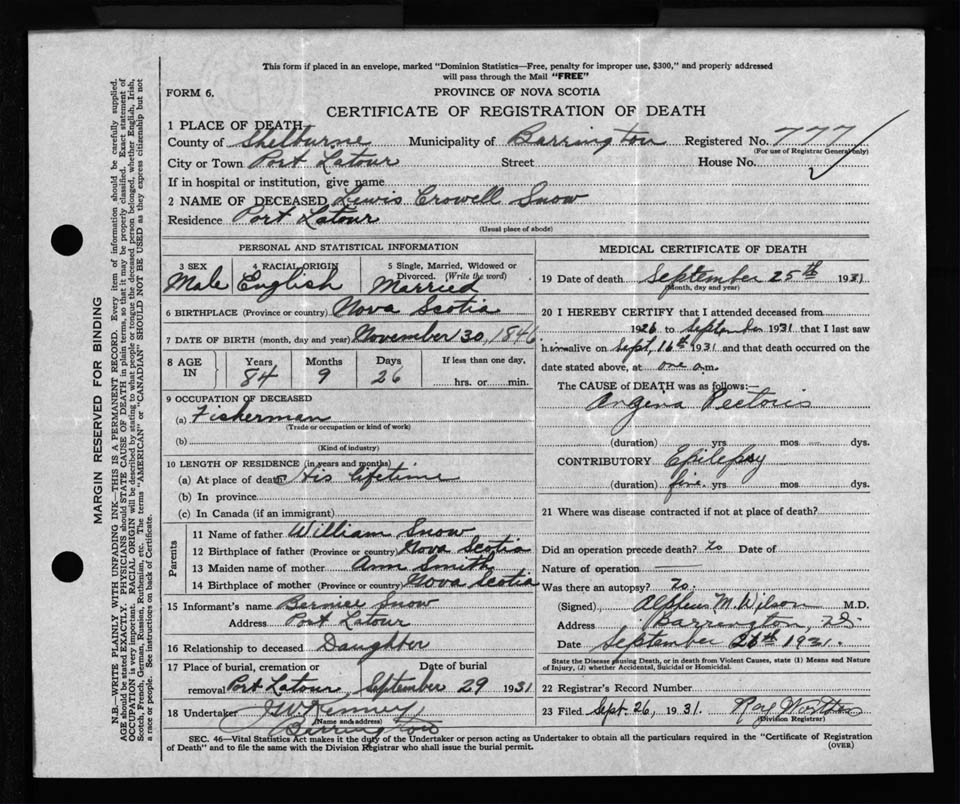 This form if placed in an envelope, marked "Dominion Statistics—Free, penalty for improper use, $300," and properly addressed
will pass through the Mail "FREE"
FORM 6.
PROVINCE OF NOVA SCOTIA
CERTIFICATE OF REGISTRATION OF DEATH
1 PLACE OF DEATH
County of Shelburne Municipality of Barrington Registered No. 777
(For use of Registrar General only)
City or Town Port Latour Street House No.
If in hospital or institution, give name
2 NAME OF DECEASED Lewis Crowell Snow
Residence Port Latour
(Usual place of abode)
PERSONAL AND STATISTICAL INFORMATION
3 SEX Male
4 RACIAL ORIGIN English
5 Single, Married, Widowed or Divorced. (Write the word) Married
6 BIRTHPLACE (Province or country) Nova Scotia
7 DATE OF BIRTH (month, day and year) November 30, 1846
8 AGE IN Years 84 Months 9 Days 26 If less than one day, hrs. or min.
9 OCCUPATION OF DECEASED
(a) Fisherman
(Trade or occupation or kind of work)
(b)
(Kind of industry)
10 LENGTH OF RESIDENCE (in years and months)
(a) At place of death His lifetime
(b) In province
(c) In Canada (if an immigrant)
Parents
11 Name of father William Snow
12 Birthplace of father (Province or country) Nova Scotia
13 Maiden name of mother Ann Smith
14 Birthplace of mother (Province or country) Nova Scotia
15 Informant's name Bernice Snow
Address Port Latour
16 Relationship to deceased Daughter
17 Place of burial, cremation or Date of burial
removal Port Latour, September 29 1931
18 Undertaker Kenney
(Name and address)
Barrington
MEDICAL CERTIFICATE OF DEATH
19 Date of death September 25th 1931
(Month, day and year)
20 I HEREBY CERTIFY that I attended deceased from
1926 to September 1931 that I last saw
him alive on Sept, 16th 1931 and that death occurred on the
date stated above, at one a.m.
The CAUSE OF DEATH was as follows:—
Angina Pectoris
(duration) yrs mos dys.
CONTRIBUTORY Epilepsy
(duration) five yrs. mos. dys.
21 Where was disease contracted if not at place of death?
Did an operation precede death? No Date of
Nature of operation —
Was there an autopsy? No.
(Signed), Alpheus M. Wilson M.D.
Address Barrington, N.S.
Date September 26th 1931.
State the Disease causing Death, or in death from Violent Causes, state (1) Means and Nature
of Injury, (2) whether Accidental, Suicidal or Homicidal.
22 Registrar's Record Number
23 Filed Sept. 26, 1931. Roy
(Division Registrar)
SEC. 46—Vital Statistics Act makes it the duty of the Undertaker or person acting as Undertaker to obtain all the particulars required in the "Certificate of Registration
of Death" and to file the same with the Division Registrar who shall issue the burial permit.
(OVER)
MARGIN RESERVED FOR BINDING
N.B.—WRITE PLAINLY WITH UNFADING INK—THIS IS A PERMANENT RECORD. Every item of information should be carefully supplied.
AGE should be stated EXACTLY. PHYSICIANS should STATE CAUSE OF DEATH in plain terms, so that it may be properly classified. Exact statement of
OCCUPATION is very important. RACIAL ORIGIN will be described by stating to what people or tongue the deceased person belonged, whether English, Irish,
Scotch, French, German, Russian, Ruthenian, etc. The terms "AMERICAN" or "CANADIAN" SHOULD NOT BE USED as they express citizenship but not
a race or people. See instructions on back of Certificate.